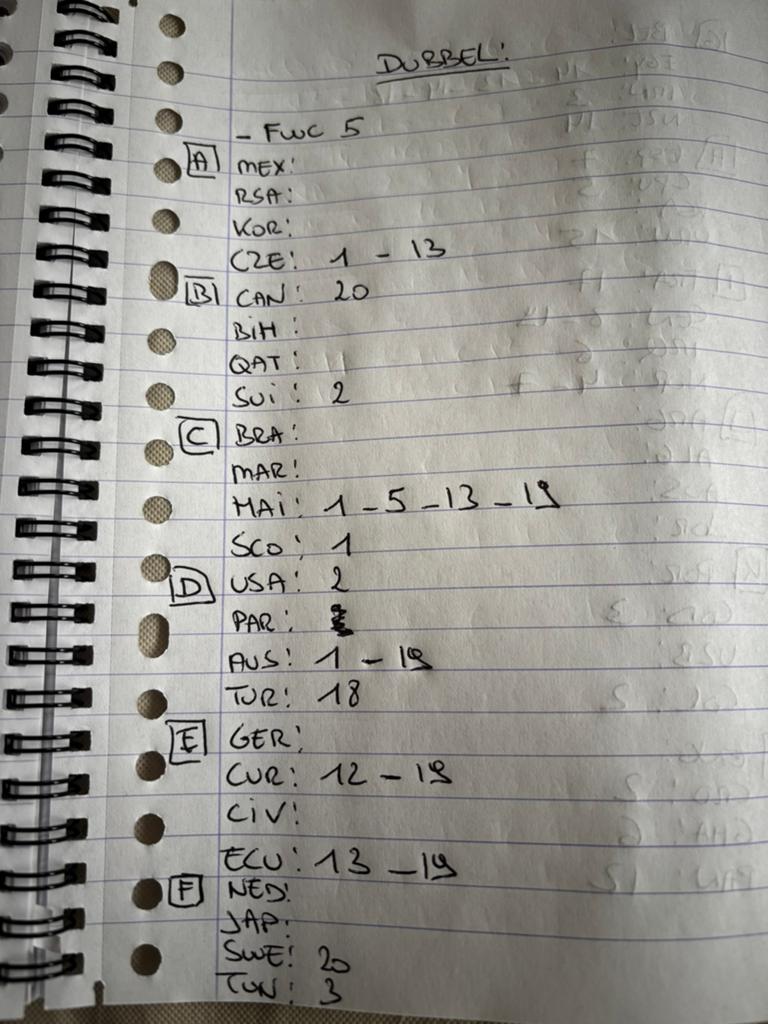 DUBBEL:
- FWC 5
A MEX:
RSA:
KOR:
CZE: 1 - 13
B CAN: 20
BiH:
QAT:
SUi: 2
C BRA:
MAR:
HAi: 1 - 5 - 13 - 19
SCO: 1
D USA: 2
PAR:
AUS: 1 - 19
TUR: 18
E GER:
CUR: 12 - 19
CiV:
ECU: 13 - 19
F NED:
JAP:
SWE: 20
TUN: 3